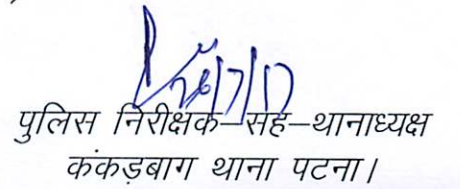 पुलिस निरीक्षक–सह–थानाध्यक्ष
कंकड़बाग थाना पटना।